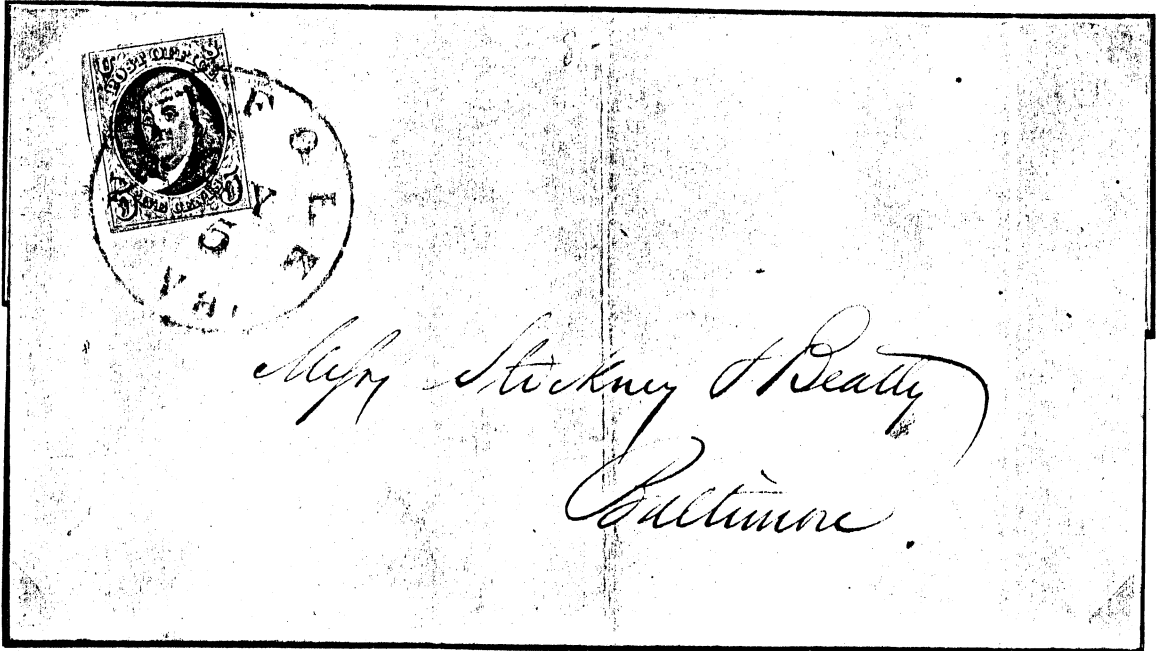 POST OFFICE
FIVE CENTS
FOLK VA
Messrs Stickney & Beatty
Baltimore.